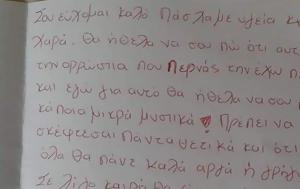 Σου εύχομαι καλό Πάσχα με υγεία κ
Χαρά. Θα ήθελα να σου πω ότι αυτ
την αρρώστια που περνάς την έχω π
και εγώ για αυτό θα ήθελα να σου
κάποια μικρά μυστικά! Πρέπει να
σκέφτεσαι πάντα θετικά και ότι
όλα θα πάνε καλά αργά ή γρήγο
Σε λίγο καιρό θα